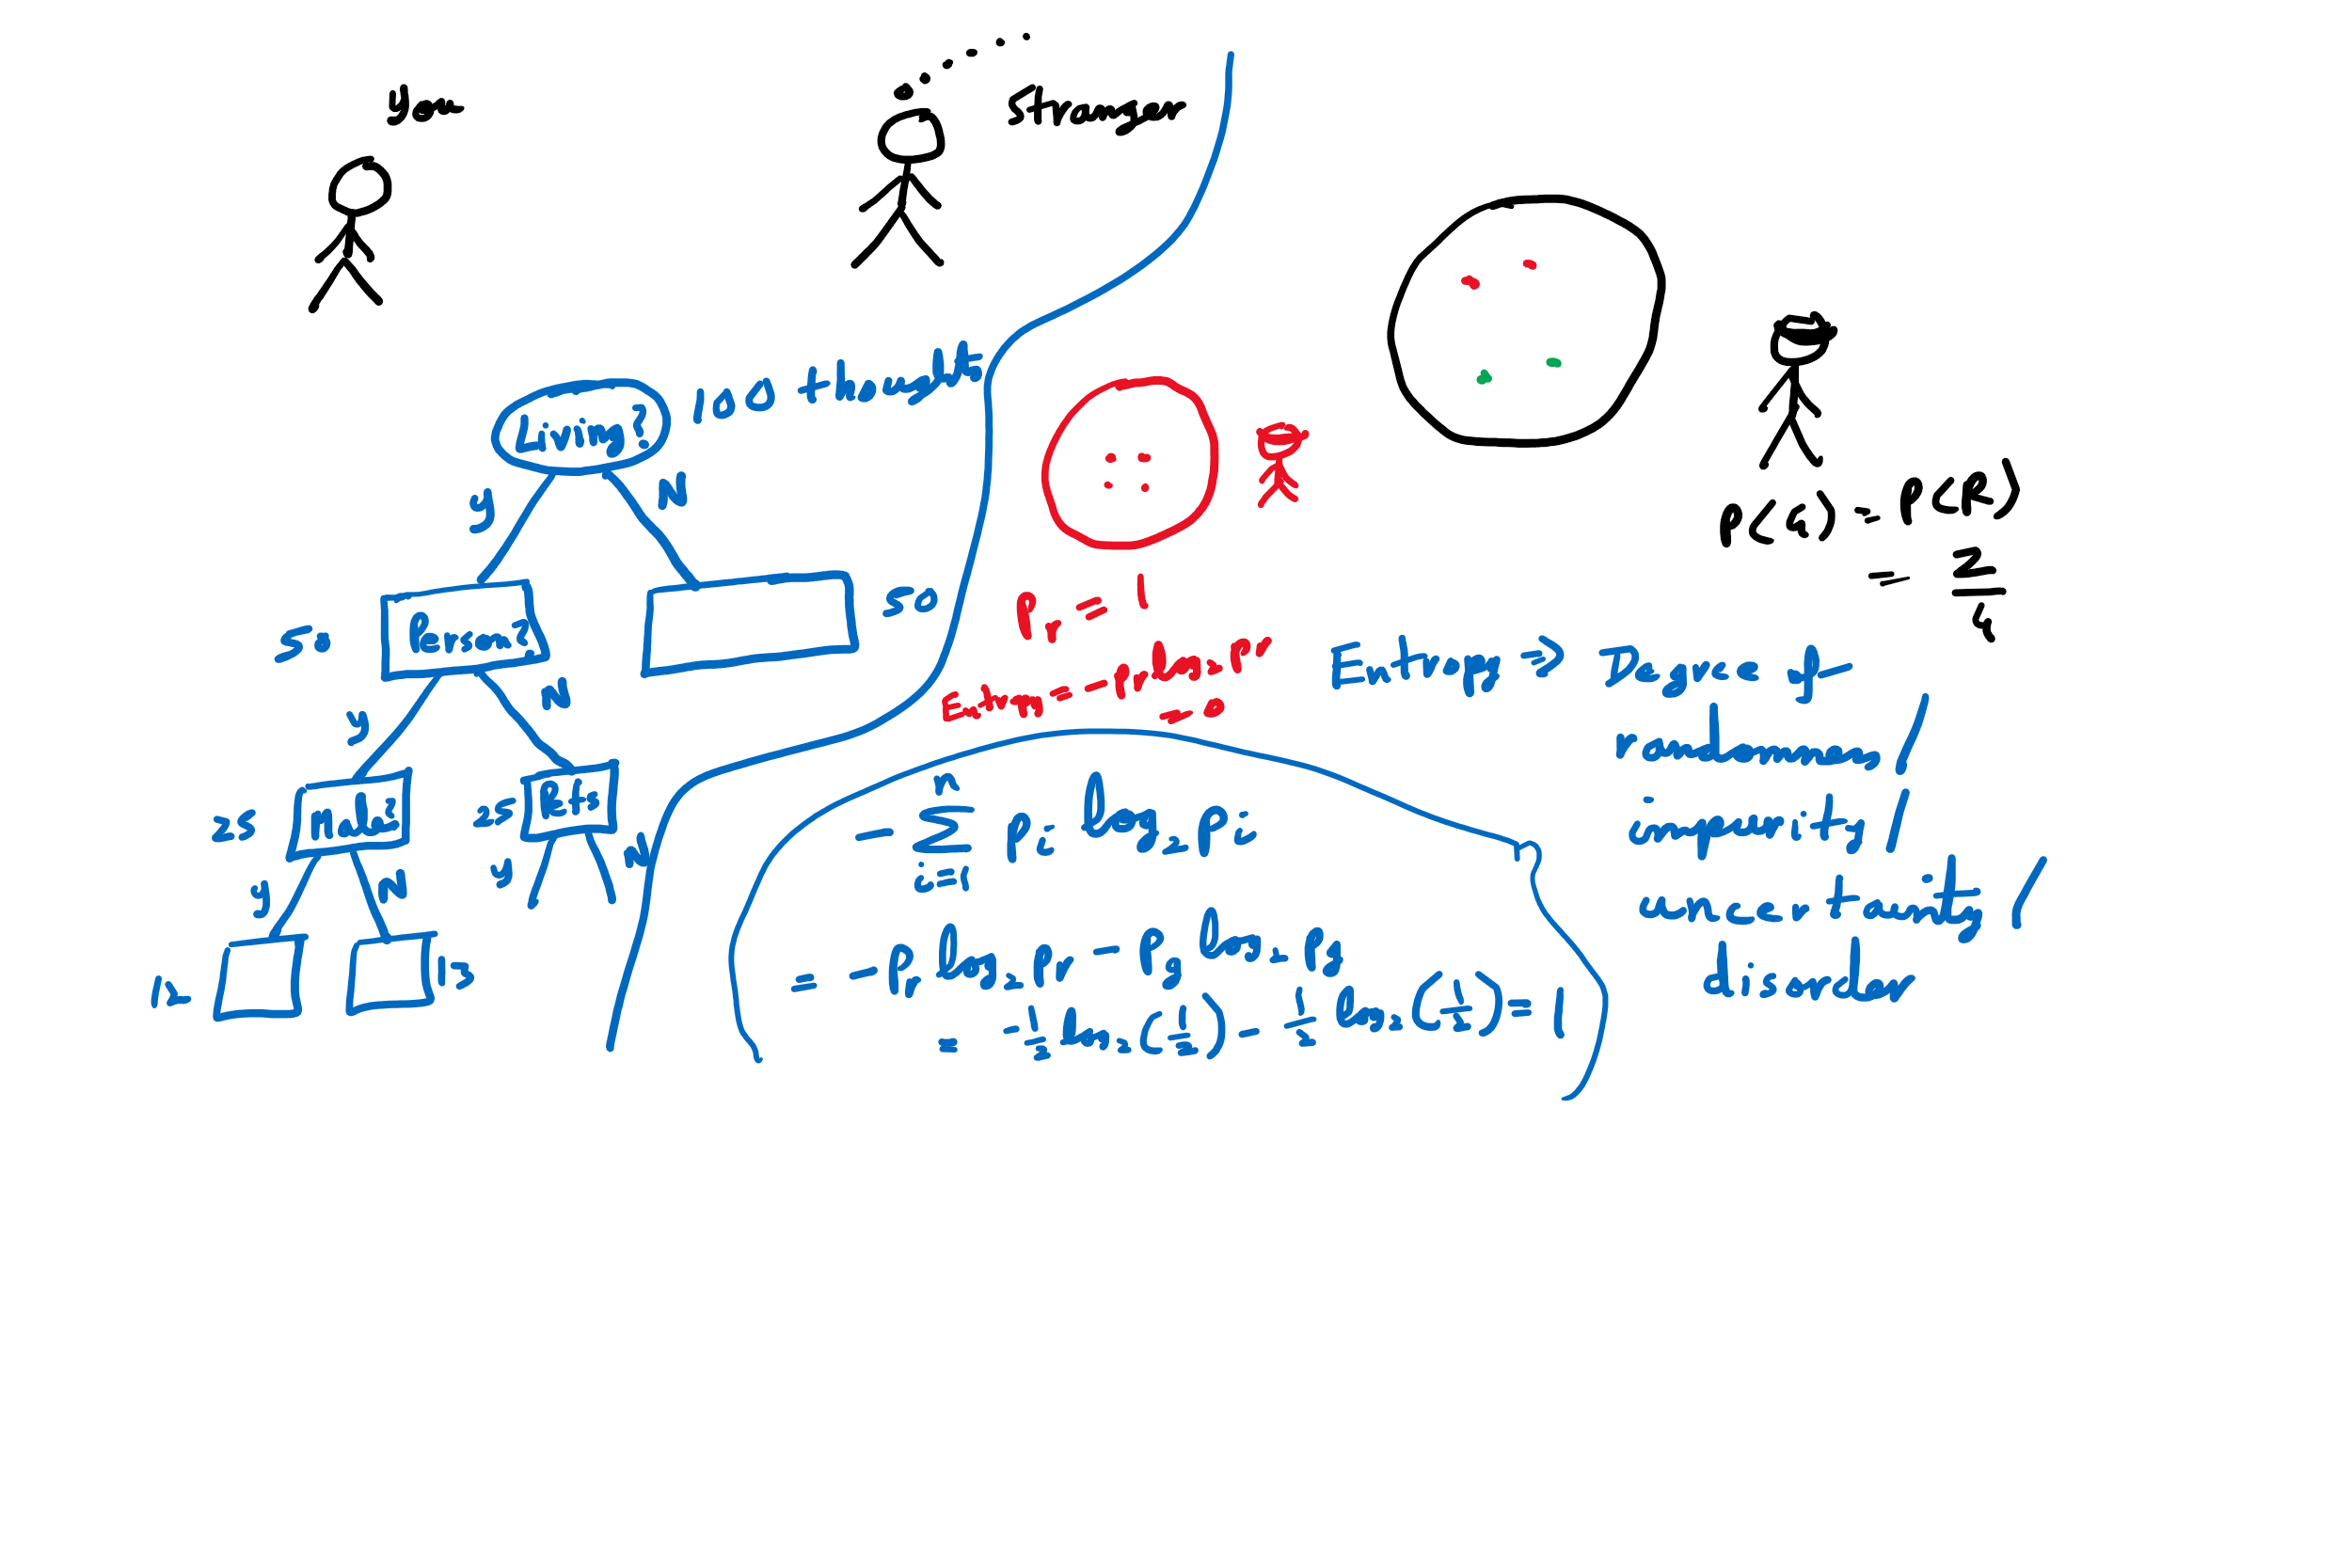 You
Stranger
Living?
100 thought
Y
N
50
Person?
50
Y
N
25
Male?
25
Pet?
Y
N
Y
N
12
13
Pr = 1
Entrop = -pr log2 pr
= 0
P(G) = P(R)
= 2/4
Entropy => Degree of
randomness/
impurity/
uncertainity/
disorder
- n Σ i=1 Pi log2 Pi
= -Pr log2 Pr - Pg log2 Pg
= -1/2 log2 (1/2) - 1/2 log2 (1/2) = 1